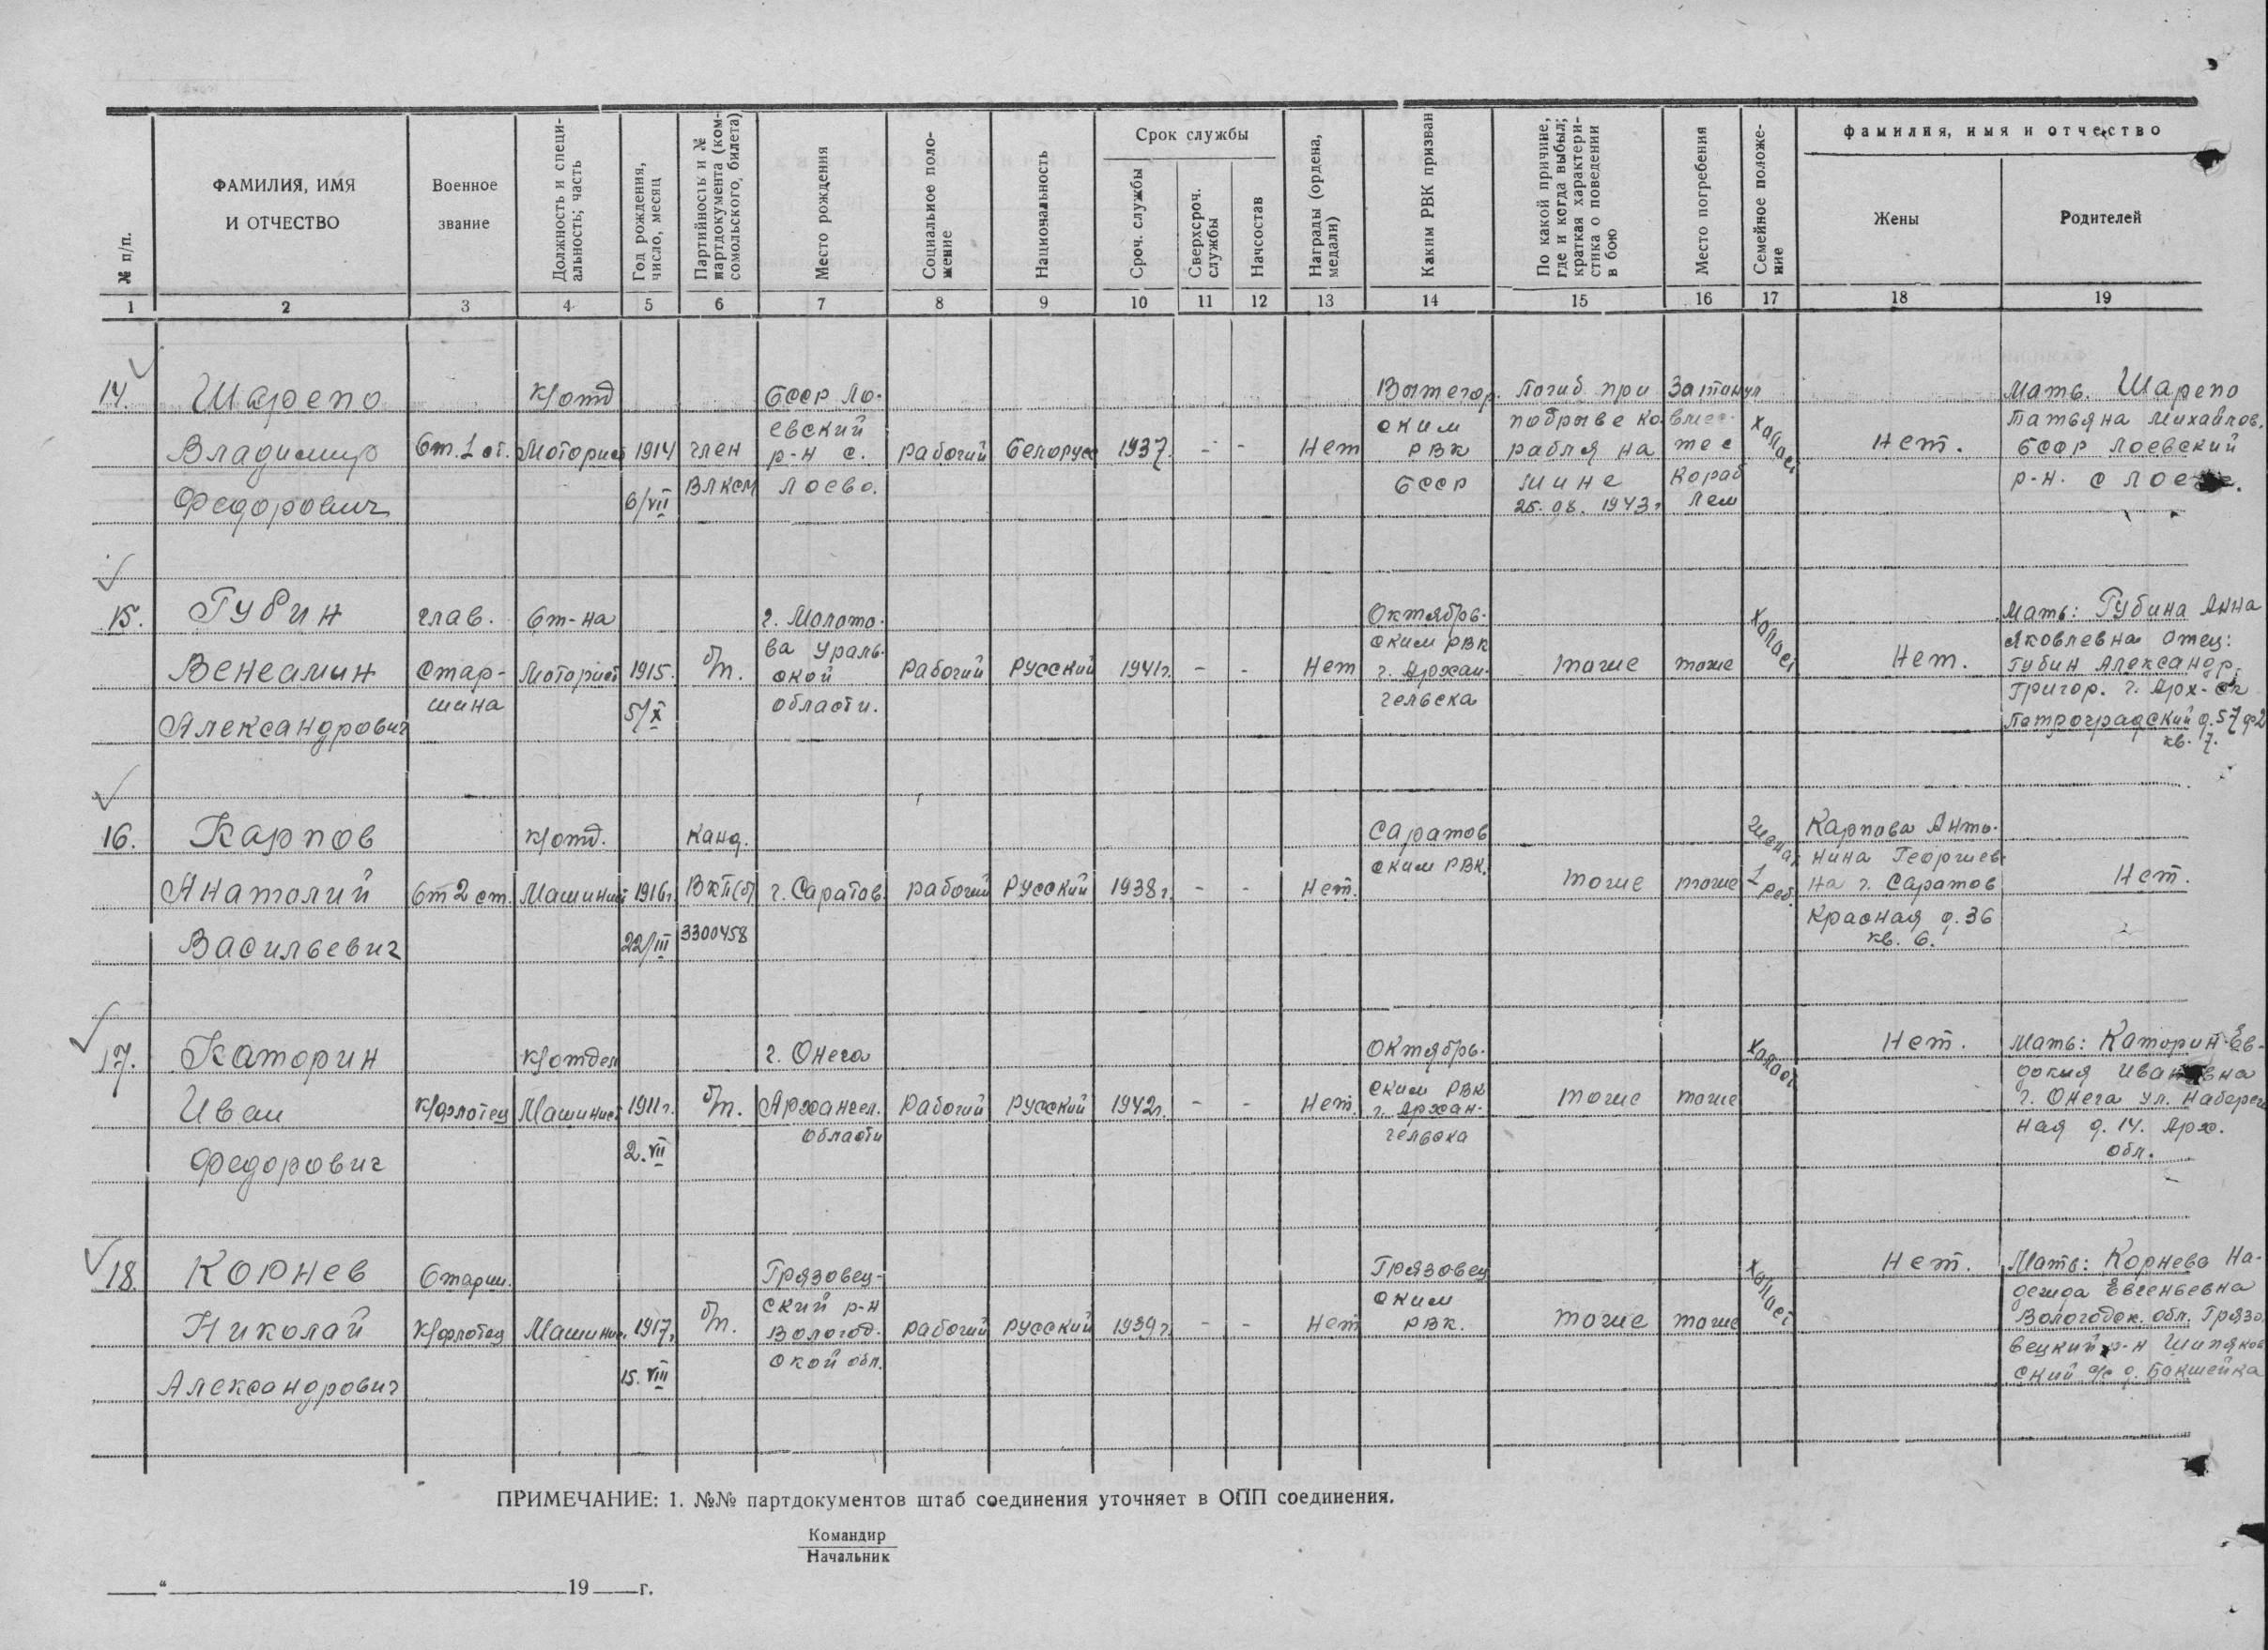 № п/п.
ФАМИЛИЯ, ИМЯ
И ОТЧЕСТВО
Военное
звание
Должность и специ-
альность; часть
Год рождения,
число, месяц
Партийность и №
партдокумента (ком-
сомольского, билета)
Место рождения
Социальное поло-
жение
Национальность
Срок службы
Сроч. службы
Сверхсроч.
службы
Начсостав
Награды (ордена,
медали)
Каким РВК призван
По какой причине,
где и когда выбыл;
краткая характери-
стика о поведении
в бою
Место погребения
Семейное положе-
ние
фамилия, имя и отчество
Жены
Родителей
1 2 3 4 5 6 7 8 9 10 11 12 13 14 15 16 17 18 19
14.
Шарепо
Владимир
Федорович
Ст. 1 ст.
К/отд
Моторист
1914
6/VII
член
ВЛКСМ
БССР Ло-
евский
р-н с.
Лоево.
рабочий
Белорусс
1937.
-
-
Нет
Вытегор.
ским
РВК
БССР
Погиб при
подрыве ко
рабля на
мине
25.08.1943г
Затонул
вмес-
те с
кораб
лем
Холост
Нет.
Мать. Шарепо
Татьяна Михайлов.
БССР Лоевский
р-н. с
15.
Губин
Вениамин
Александрович
глав.
стар-
шина
Ст-на
Моторист
1915.
5/X
б/п.
г. Молото-
ва Ураль-
ской
области.
Рабочий
Русский
1941г.
-
-
Нет
Октябрь-
ским РВК
г. Архан-
гельска
тоже
тоже
Холост
Нет.
Мать: Губина Анна
Яковлевна отец:
Губин Александр.
Григор. г. Арх-ск
Петроградский д.57 ф2
кв. 7.
16.
Карпов
Анатолий
Васильевич
Ст 2 ст.
К/отд.
Машинист
1916г.
22/III
Канд.
ВКП(б)
3300458
г. Саратов.
рабочий
Русский
1938г.
-
-
Нет.
Саратов
ским РВК.
тоже
тоже
Женат
1 реб.
Карпова Анто-
нина Георгиев-
на г. Саратов
Красная д.36
кв. 6.
Нет.
17.
Каторин
Иван
Федорович
К/флотец
К/отдел
Машинист
1911г.
2.VII
б/п.
г. Онега
Архангел.
области
Рабочий
Русский
1942г.
-
-
Нет.
Октябрь-
ским РВК
г. Архан-
гельска
тоже
тоже
Холост
Нет.
Мать: Каторин Ев-
докия Ивановна
г. Онега ул. Набереж
ная д.14. Арх.
обл.
18.
Корнев
Николай
Александрович
Старш.
К/флотец
Машинис.
1917г
15.VIII
б/п.
Грязовец-
ский р-н
Вологод-
ской обл.
рабочий
русский
1939г.
-
-
Нет
Грязовец
ским
РВК.
тоже
тоже
Холост
Нет.
Мать: Корнева На-
дежда Евгеньевна
Вологодск. обл. Грязо
вецкий р-н
ский с/с д. Бакшейка
ПРИМЕЧАНИЕ: 1. №№ партдокументов штаб соединения уточняет в ОПП соединения.
Командир
Начальник
" 19 г.